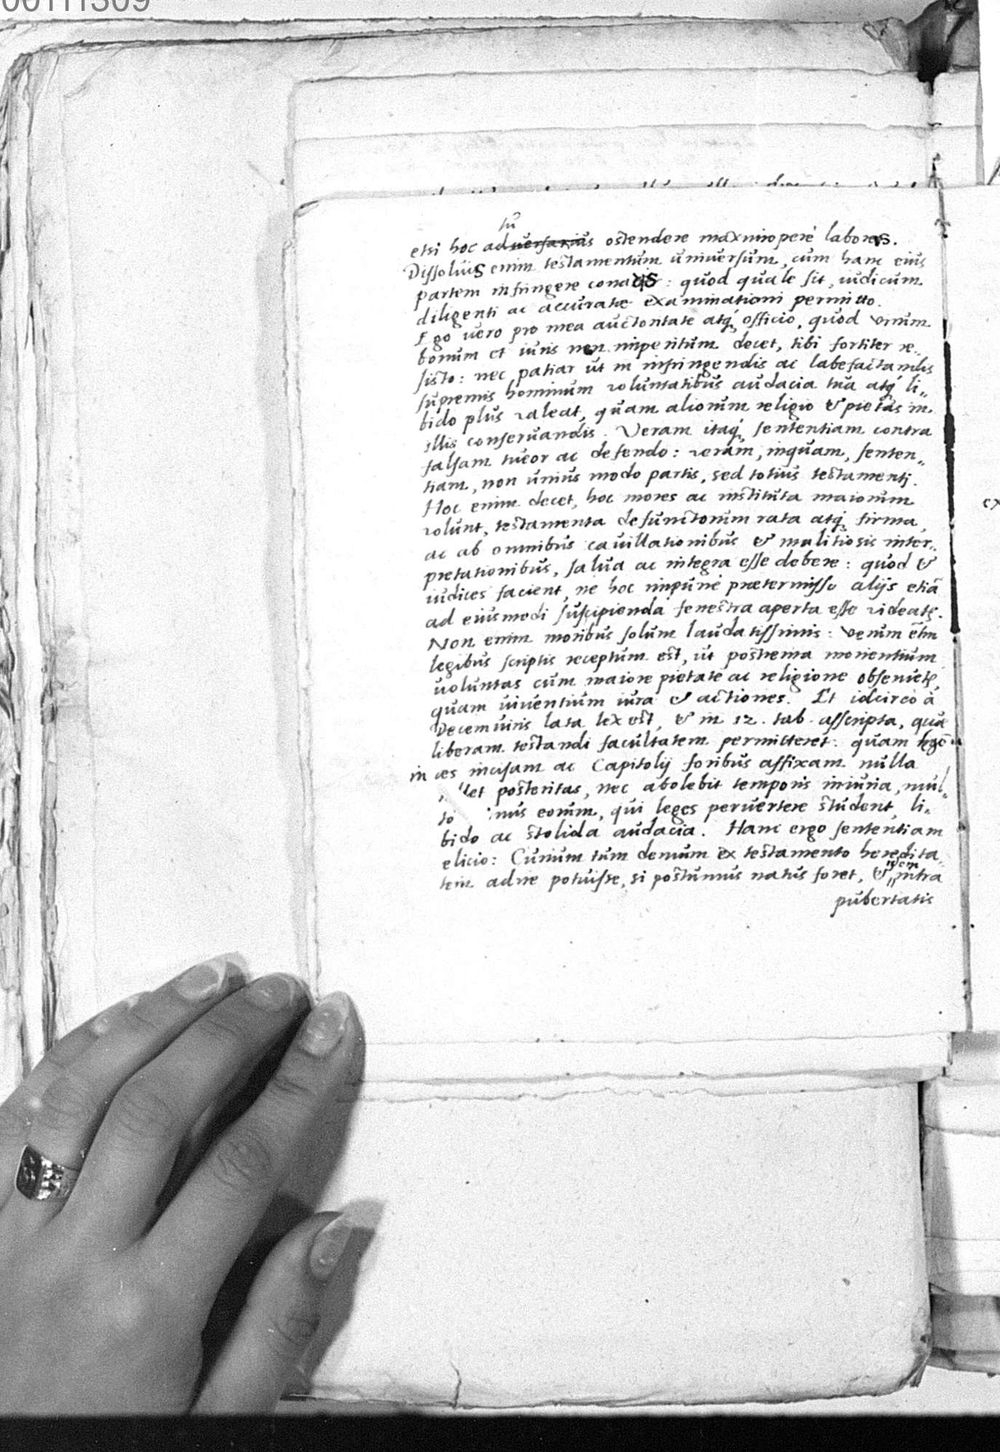 00111309
tu
etsi hoc adversarius ostendere maxumopere labores.
Dissoluis enim testamentum universum, cum hanc eius
partem infringere conaris: quod quale sit, iudicum
diligenti ac accuratae examinationi permitto.
Ego vero pro mea auctoritate atq́ officio, quod virum
bonum et iuris non imperitum decet, tibi fortiter re„
sisto: nec patiar ut in infringendis ac labefactandis
supremis hominum voluntatibus audacia tua atq́ li„
bido plus valeat, quam aliorum religio & pietas in
illis conservandis. Veram itaq́ sententiam contra
falsam tueor ac defendo: veram, inquam, senten„
tiam, non unius modo partis, sed totius testamenti.
Hoc enim decet, hoc mores ac instituta maiorum
volunt, testamenta defunctorum rata atq́ firma,
ac ab omnibus cavillationibus & malitiosis inter„
pretationibus, salua ac integra esse debere: quod &
iudices facient, ne hoc impune praetermisso alijs etiā
ad eiusmodi suscipienda fenestra aperta esse videatꝛ.
Non enim moribus solum laudatissimis: verum etm
legibus scriptis receptum est, ut postrema morientium
voluntas cum maiore pietate ac religione observetꝛ,
quam viventium iura & actiones. Et idcirco à
Decemviris lata lex est, & in 12. tab. asscripta, quae
liberam testandi facultatem permitteret: quam
in aes incisam ac Capitolij foribus affixam nulla
let posteritas, nec abolebit temporis iniuria, nul„
to nus eorum, qui leges pervertere student li„
bido ac stolida audacia. Hanc ergo sententiam
elicio: Curium tum demum ex testamento heredita„
tem adire potuisse, si postumus natus foret, & intra
pubertatis